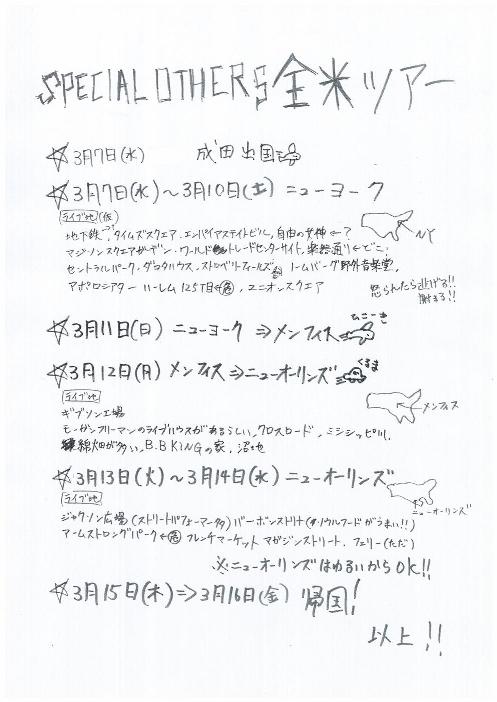 SPECIAL OTHERS 全米ツアー
☆3月7日(水) 成田出国
☆3月7日(水)～3月10日(土) ニューヨーク
ライブ地(仮)
地下鉄、タイムズスクエア、エンパイアステイトビル、自由の女神←?
NY
マジソンスクエアガーデン・ワールドトレードセンターサイト、楽器通り←どこ
セントラルパーク、ダコタハウス、ストロベリーフィールズ ノームバーグ野外音楽堂、
アポロシアター ハーレム125丁目←危、ユニオンスクエア
怒られたら逃げる!!
謝まる!!
☆3月11日(日) ニューヨーク⇒メンフィス
ひこーき
☆3月12日(月) メンフィス⇒ニューオーリンズ
くるま
ライブ地
ギブソン工場
←メンフィス
モーガンフリーマンのライブハウスがあるらしい、クロスロード、ミシシッピ川、
綿畑が多い、B.B KINGの家、沼地
☆3月13日(火)～3月14日(水) ニューオーリンズ
ライブ地
ニューオーリンズ
ジャクソン広場(ストリートパフォーマー多) バーボンストリート(ソウルフードがうまい!!)
アームストロングパーク←危 フレンチマーケット マガジンストリート、フェリー(ただ)
※ニューオーリンズはゆるいからOK!!
☆3月15日(木)⇒3月16日(金) 帰国!
以上!!